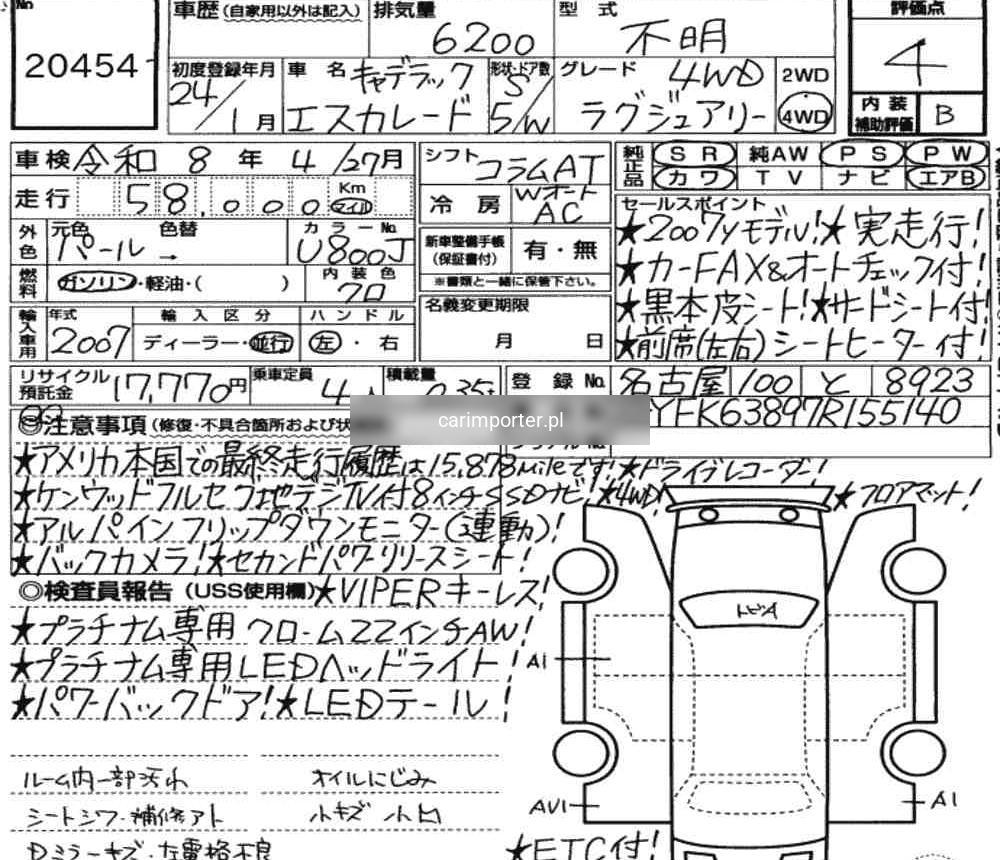 No
20454
車歴(自家用以外は記入)
排気量
6200
型式
不明
評価点
4
初度登録年月
24/1月
車名
キャデラック
エスカレード
形状・ドア数
S/5/W
グレード
4WD
ラグジュアリー
2WD
4WD
内装
補助評価
B
車検 令和 8 年 4/27月
走行 58,000 Km マイル
シフト コラムAT
冷房 Wオート AC
純正品
SR 純AW PS PW
カワ TV ナビ エアB
外色
元色 色替
パール→
カラーNo.
U800J
燃料
ガソリン・軽油・( )
内装色
クロ
新車整備手帳
(保証書付)
有・無
※書類と一緒に保管下さい。
セールスポイント
★2007yモデル!★実走行!
★カーFAX&オートチェック付!
★黒本皮シート!★サードシート付!
★前席(左右)シートヒーター付!
輸入車用
年式 輸入区分 ハンドル
2007 ディーラー・並行 左・右
名義変更期限
月 日
リサイクル預託金 17,770円
乗車定員 4人
積載量 0.35t
登録No. 名古屋 100 と 8923
YFK63897R155140
carimporter.pl
◎注意事項(修復・不具合箇所および状
★アメリカ本国での最終走行履歴は15,878mileです!★ドライブレコーダー!
★ケンウッドフルセグ地デジTV付8インチSSDナビ ★4WD! ★フロアマット!
★アルパインフリップダウンモニター(連動)!
★バックカメラ!★セカンドパワーリリースシート!
◎検査員報告(USS使用欄)★VIPERキーレス!
★プラチナム専用クローム22インチAW!
★プラチナム専用LEDヘッドライト!
★パワーバックドア!★LEDテール!
トビA
A1
AV1
A1
ルーム内一部汚れ オイルにじみ
シートシワ・補修アト 小キズ 小凹
Dミラーキズ・左電格不良
★ETC付!